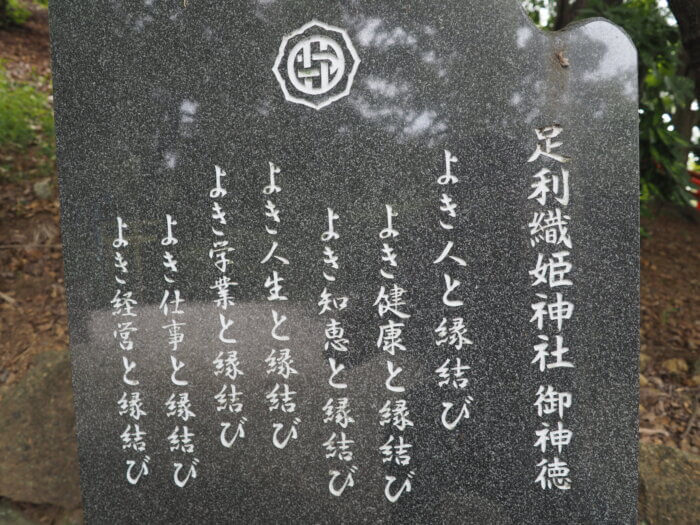 足利織姫神社 御神徳
よき人と縁結び
よき健康と縁結び
よき知恵と縁結び
よき人生と縁結び
よき学業と縁結び
よき仕事と縁結び
よき経営と縁結び